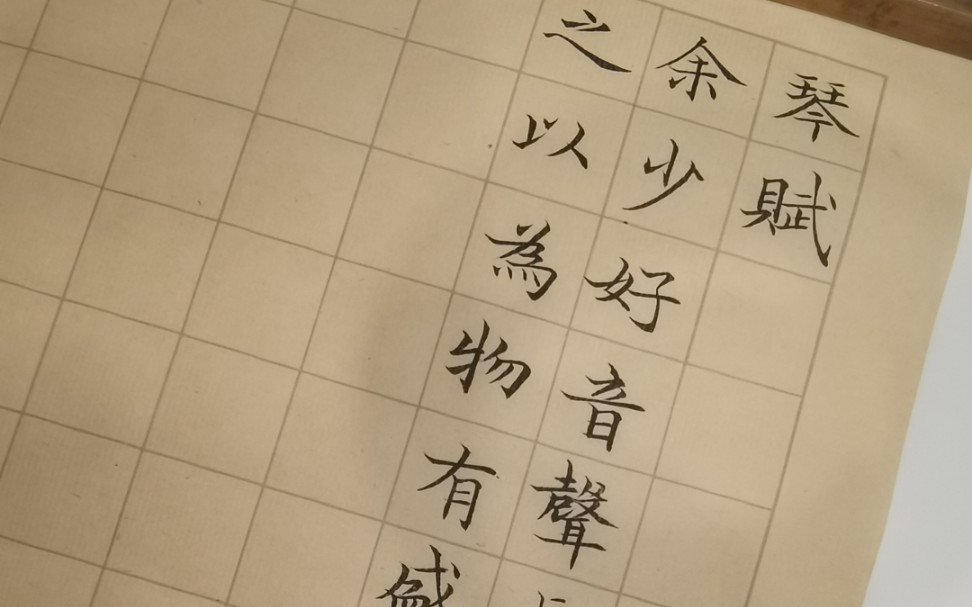 琴賦
余少好音聲
之以為物有盛